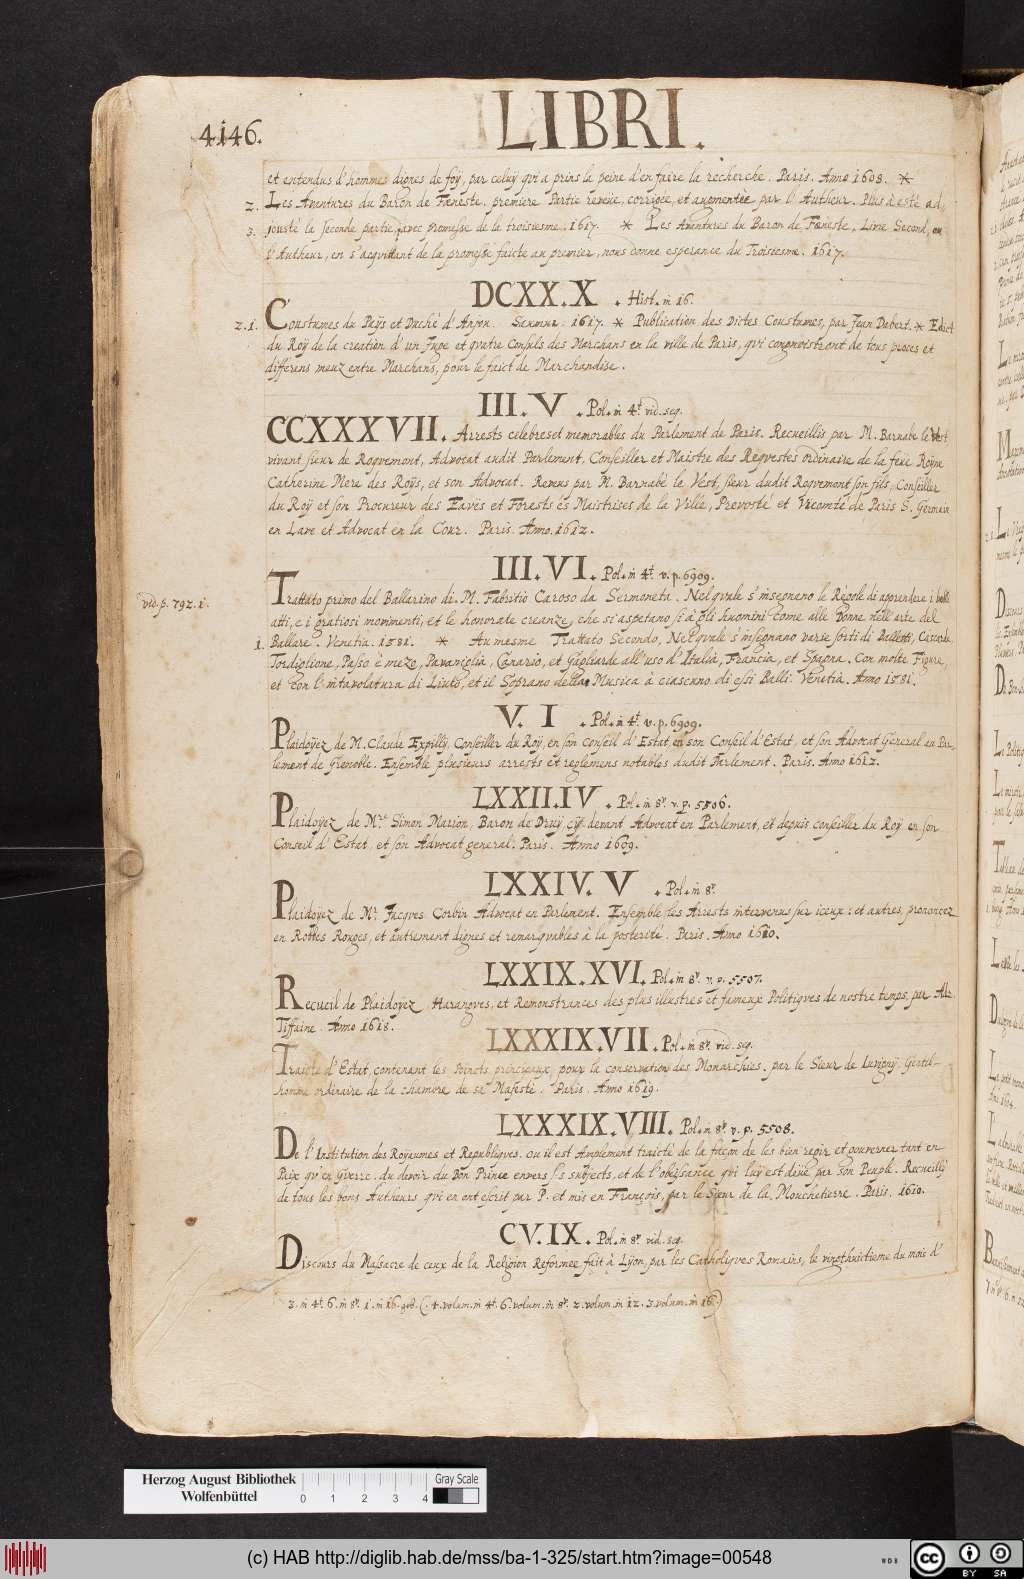 4146.
LIBRI.
et entendus d'hommes dignes de foy, par celuy qui a prins la peine d'en faire la recherche. Paris. Anno 1608. *
2. Les Aventures du Baron de Fæneste. premiere Partie reveue, corrigée, et augmentée par l'Autheur. Plus à esté ad-
3. jousté la Seconde partie, avec promesse de la troisiesme. 1617. * Les Aventures du Baron de Fæneste, Livre Second, ou
l'Autheur, en s'acquittant de la promesse faicte au premier, nous donne esperance du Troisiesme. 1617.
DCXX.X . Hist. in 16.
2. 1. Coustumes du Païs et Duché d'Anjou. Saumur. 1617. * Publication des Dictes Coustumes, par Jean Dabert. * Edict
du Roy de la creation d'un Juge et quatre Consuls des Marchans en la ville de Paris, qui cognoistront de tous proces et
differens meuz entre Marchans, pour le faict de Marchandise.
III.V . Pol. in 4t. vid. seq.
CCXXXVII. Arrests celebres et memorables du Parlement de Paris. Recueillis par M. Barnabe le Vest
vivant sieur de Roquemont, Advocat audit Parlement, Conseiller et Maistre des Requestes ordinaire de la feüe Royne
Catherine Mere des Roys, et son Advocat. Reveus par M. Barnabé le Vest, sieur dudit Roquemont son fils, Conseiller
du Roy et son Procureur des Eaves et Forests és Maistrises de la Ville, Prevosté et Vicomté de Paris S. Germain
en Laye et Advocat en la Cour. Paris. Anno. 1612.
III.VI. Pol. in 4t. v. p. 6909.
vid. p. 792. i.
Trattato primo del Ballarino di M. Fabritio Caroso da Sermoneta. Nel quale s'insegnano le Regole di apprendere i belli
atti, e i gratiosi movimenti, et le honorate creanze, che si aspetano si à gli huomini come alle Donne nell'arte del
1. Ballare. Venetia. 1581. * Au mesme Trattato Secondo, Nel quale s'insegnano varie sorti di Balletti, Cascarde,
Tordiglione, Passo è mezo, Pavaniglia, Canario, et Gagliarde all'uso d'Italia, Francia, et Spagna. Con molte Figure,
et con l'intavolatura di Liuto, et il Soprano della Musica à ciascuno di essi Balli. Venetia. Anno 1581.
V. I . Pol. in 4t. v. p. 6909.
Plaidoyez de M. Claude Expilly, Conseiller du Roy, en son conseil d'Estat, en son Conseil d'Estat, et son Advocat General au Par-
lement de Grenoble. Ensemble plusieurs arrests et reglemens notables dudit Parlement. Paris. Anno 1612.
LXXII.IV . Pol. in 8v. v. p. 5506.
Plaidoyez de Mre Simon Marion, Baron de Druy, cy devant Advocat en Parlement, et depuis conseiller du Roy en son
Conseil d'Estat, et son Advocat general. Paris. Anno 1609.
LXXIV. V . Pol. in 8v.
Plaidoyez de Mr. Jacques Corbin Advocat en Parlement. Ensemble les Arrests intervenus sur iceux: et autres, prononcez
en Robbes Rouges, et autrement dignes et remarquables à la posterité. Paris. Anno 1610.
LXXIX.XVI. Pol. in 8v. v. p. 5507.
Recueil de Plaidoyez, Harangues, et Remonstrances des plus illustres et fameux Politiques de nostre temps, par Alr.
Tiffaine. Anno 1618.
LXXXIX.VII . Pol. in 8v. vid. seq.
Traicté d'Estat, contenant les Poincts principaux, pour la conservation des Monarchies. par le Sieur de Luvigny, Gentil-
homme ordinaire de la chambre de sa Majesté. Paris. Anno 1619.
LXXXIX.VIII. Pol. in 8v. v. p. 5508.
De l'Institution des Royaumes et Republiques. ou il est Amplement traicté de la façon de les bien regir et gouverner tant en
Paix qu'en Guerre. du devoir du Bon Prince envers ses subjects, et de l'obeïssance qui luy est deüe par son Peuple. Recueilly
de tous les bons Autheurs qui en ont escrit par P. et mis en François, par le Sieur de la Mouchetierre. Paris. 1610.
CV.IX. Pol. in 8v. vid. seq.
Discours du Massacre de ceux de la Religion Reformee fait à Lyon, par les Catholiques Romains, le vingthuictieme du mois d'
3. in 4t. 6. in 8v. 1. in 16. (. 4. volum. in 4t. 6. volum. in 8v. 2. volum. in 12. 3. volum. in 16.)
Herzog August Bibliothek
Wolfenbüttel
0 1 2 3 4
Gray Scale
(c) HAB http://diglib.hab.de/mss/ba-1-325/start.htm?image=00548
WDB
CC BY SA